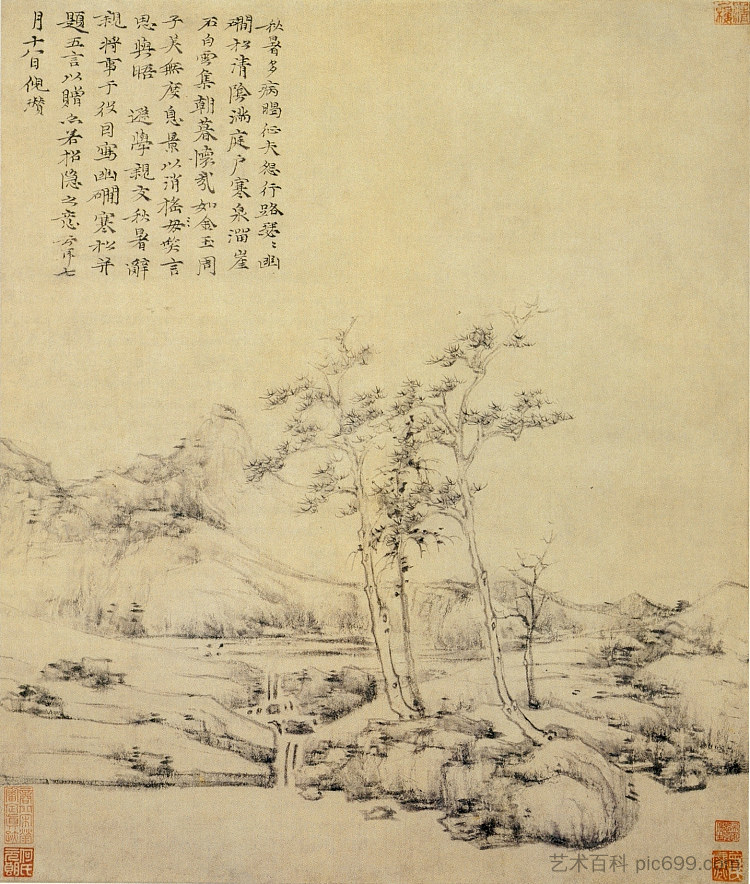 秋暑多病暍征夫怨行路瑟〻幽
磵松清陰滿庭戶寒泉溜崖
石白雲集朝暮懷哉如金玉周
子美無度息景以消搖笑言
思與晤 遜學親友秋暑辭
親將事于役因寫幽磵寒松并
題五言以贈亦若招隱之意云耳七
月十八日倪瓚
艺术百科 pic699.com